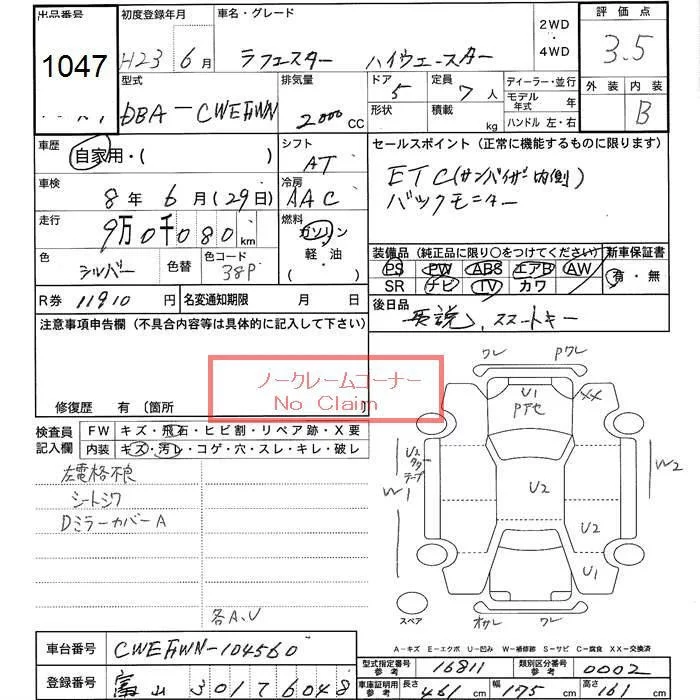 出品番号 初度登録年月 車名・グレード 2WD 4WD 評価点
1047 H23 6月 ラフェスター ハイウェースター 3.5
型式 排気量 ドア 定員 ディーラー・並行 外装 内装
DBA-CWEFWN 2000 CC 5 7人 モデル年式 年 B
形状 積載 kg ハンドル 左・右
車歴 シフト セールスポイント(正常に機能するものに限ります)
自家用・( ) AT
ETC(サンバイザー内側)
車検 冷房
8年6月(29日) AAC バックモニター
走行 燃料
9万0千080km ガソリン
軽油
( )
装備品(純正品に限り○をつけてください) 新車保証書
色 シルバー 色替 色コード 38P
PS PW ABS エアB AW 有・無
SR ナビ TV カワ
R券 11910円 名変通知期限 月 日
後日品
取説、スマートキー
注意事項申告欄(不具合内容等は具体的に記入して下さい)
ノークレームコーナー
No Claim
修復歴 有〔箇所
検査員記入欄 FW キズ・飛石・ヒビ割・リペア跡・X要
内装 キズ・汚レ・コゲ・穴・スレ・キレ・破レ
左電格不良
シートシワ
DミラーカバーA
各A.U
ワレ Pワレ
U1 XX
Pアセ
U2
タッチ
テープ
W1 U2 W2
U2
U1
スペア オサレ ワレ
A-キズ E-エクボ U-凹み W-補修跡 S-サビ C-腐食 XX-交換済
車台番号 CWEFWN-104560
型式指定番号 参考 16811 類別区分番号 参考 0002
登録番号 富山 301 76048
車庫証明用 参考 長さ 461cm 幅 175cm 高さ 161cm